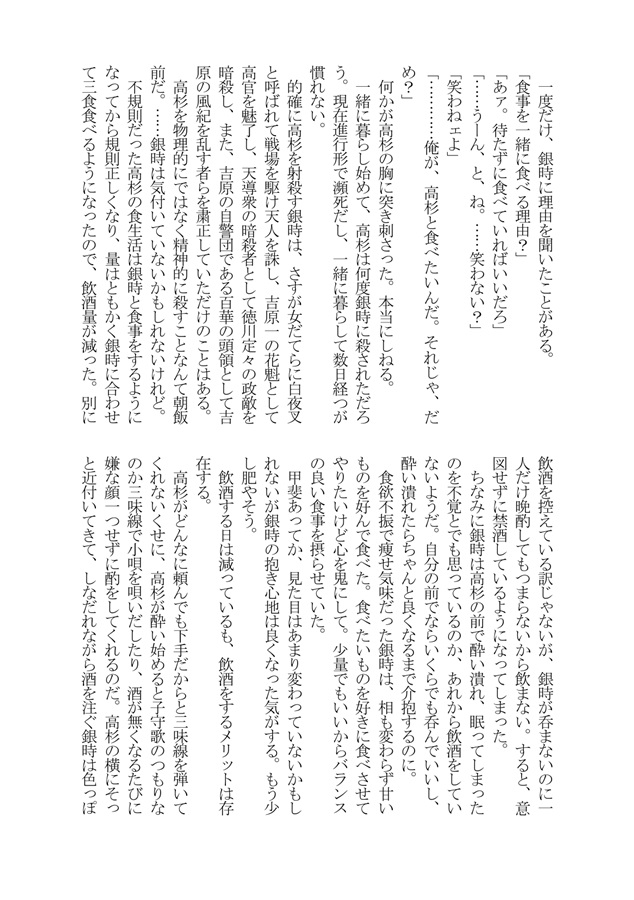 一度だけ、銀時に理由を聞いたことがある。
「食事を一緒に食べる理由？」
「あァ。待たずに食べていればいいだろ」
「……うーん、と、ね。……笑わない？」
「笑わねェよ」
「…………俺が、高杉と食べたいんだ。それじゃ、だ
め？」
　何かが高杉の胸に突き刺さった。本当にしねる。
　一緒に暮らし始めて、高杉は何度銀時に殺されただろ
う。現在進行形で瀕死だし、一緒に暮らして数日経つが
慣れない。
　的確に高杉を射殺す銀時は、さすが女だてらに白夜叉
と呼ばれて戦場を駆け天人を誅し、吉原一の花魁として
高官を魅了し、天導衆の暗殺者として徳川定々の政敵を
暗殺し、また、吉原の自警団である百華の頭領として吉
原の風紀を乱す者らを粛正していただけのことはある。
　高杉を物理的にではなく精神的に殺すことなんて朝飯
前だ。……銀時は気付いていないかもしれないけれど。
　不規則だった高杉の食生活は銀時と食事をするように
なってから規則正しくなり、量はともかく銀時に合わせ
て三食食べるようになったので、飲酒量が減った。別に
飲酒を控えている訳じゃないが、銀時が呑まないのに一
人だけ晩酌してもつまらないから飲まない。すると、意
図せずに禁酒しているようになってしまった。
　ちなみに銀時は高杉の前で酔い潰れ、眠ってしまった
のを不覚とでも思っているのか、あれから飲酒をしてい
ないようだ。自分の前でならいくらでも呑んでいいし、
酔い潰れたらちゃんと良くなるまで介抱するのに。
　食欲不振で痩せ気味だった銀時は、相も変わらず甘い
ものを好んで食べた。食べたいものを好きに食べさせて
やりたいけど心を鬼にして。少量でもいいからバランス
の良い食事を摂らせていた。
　甲斐あってか、見た目はあまり変わっていないかもし
れないが銀時の抱き心地は良くなった気がする。もう少
し肥やそう。
　飲酒する日は減っているも、飲酒をするメリットは存
在する。
　高杉がどんなに頼んでも下手だからと三味線を弾いて
くれないくせに、高杉が酔い始めると子守歌のつもりな
のか三味線で小唄を唄いだしたり、酒が無くなるたびに
嫌な顔一つせずに酌をしてくれるのだ。高杉の横にそっ
と近付いてきて、しなだれながら酒を注ぐ銀時は色っぽ